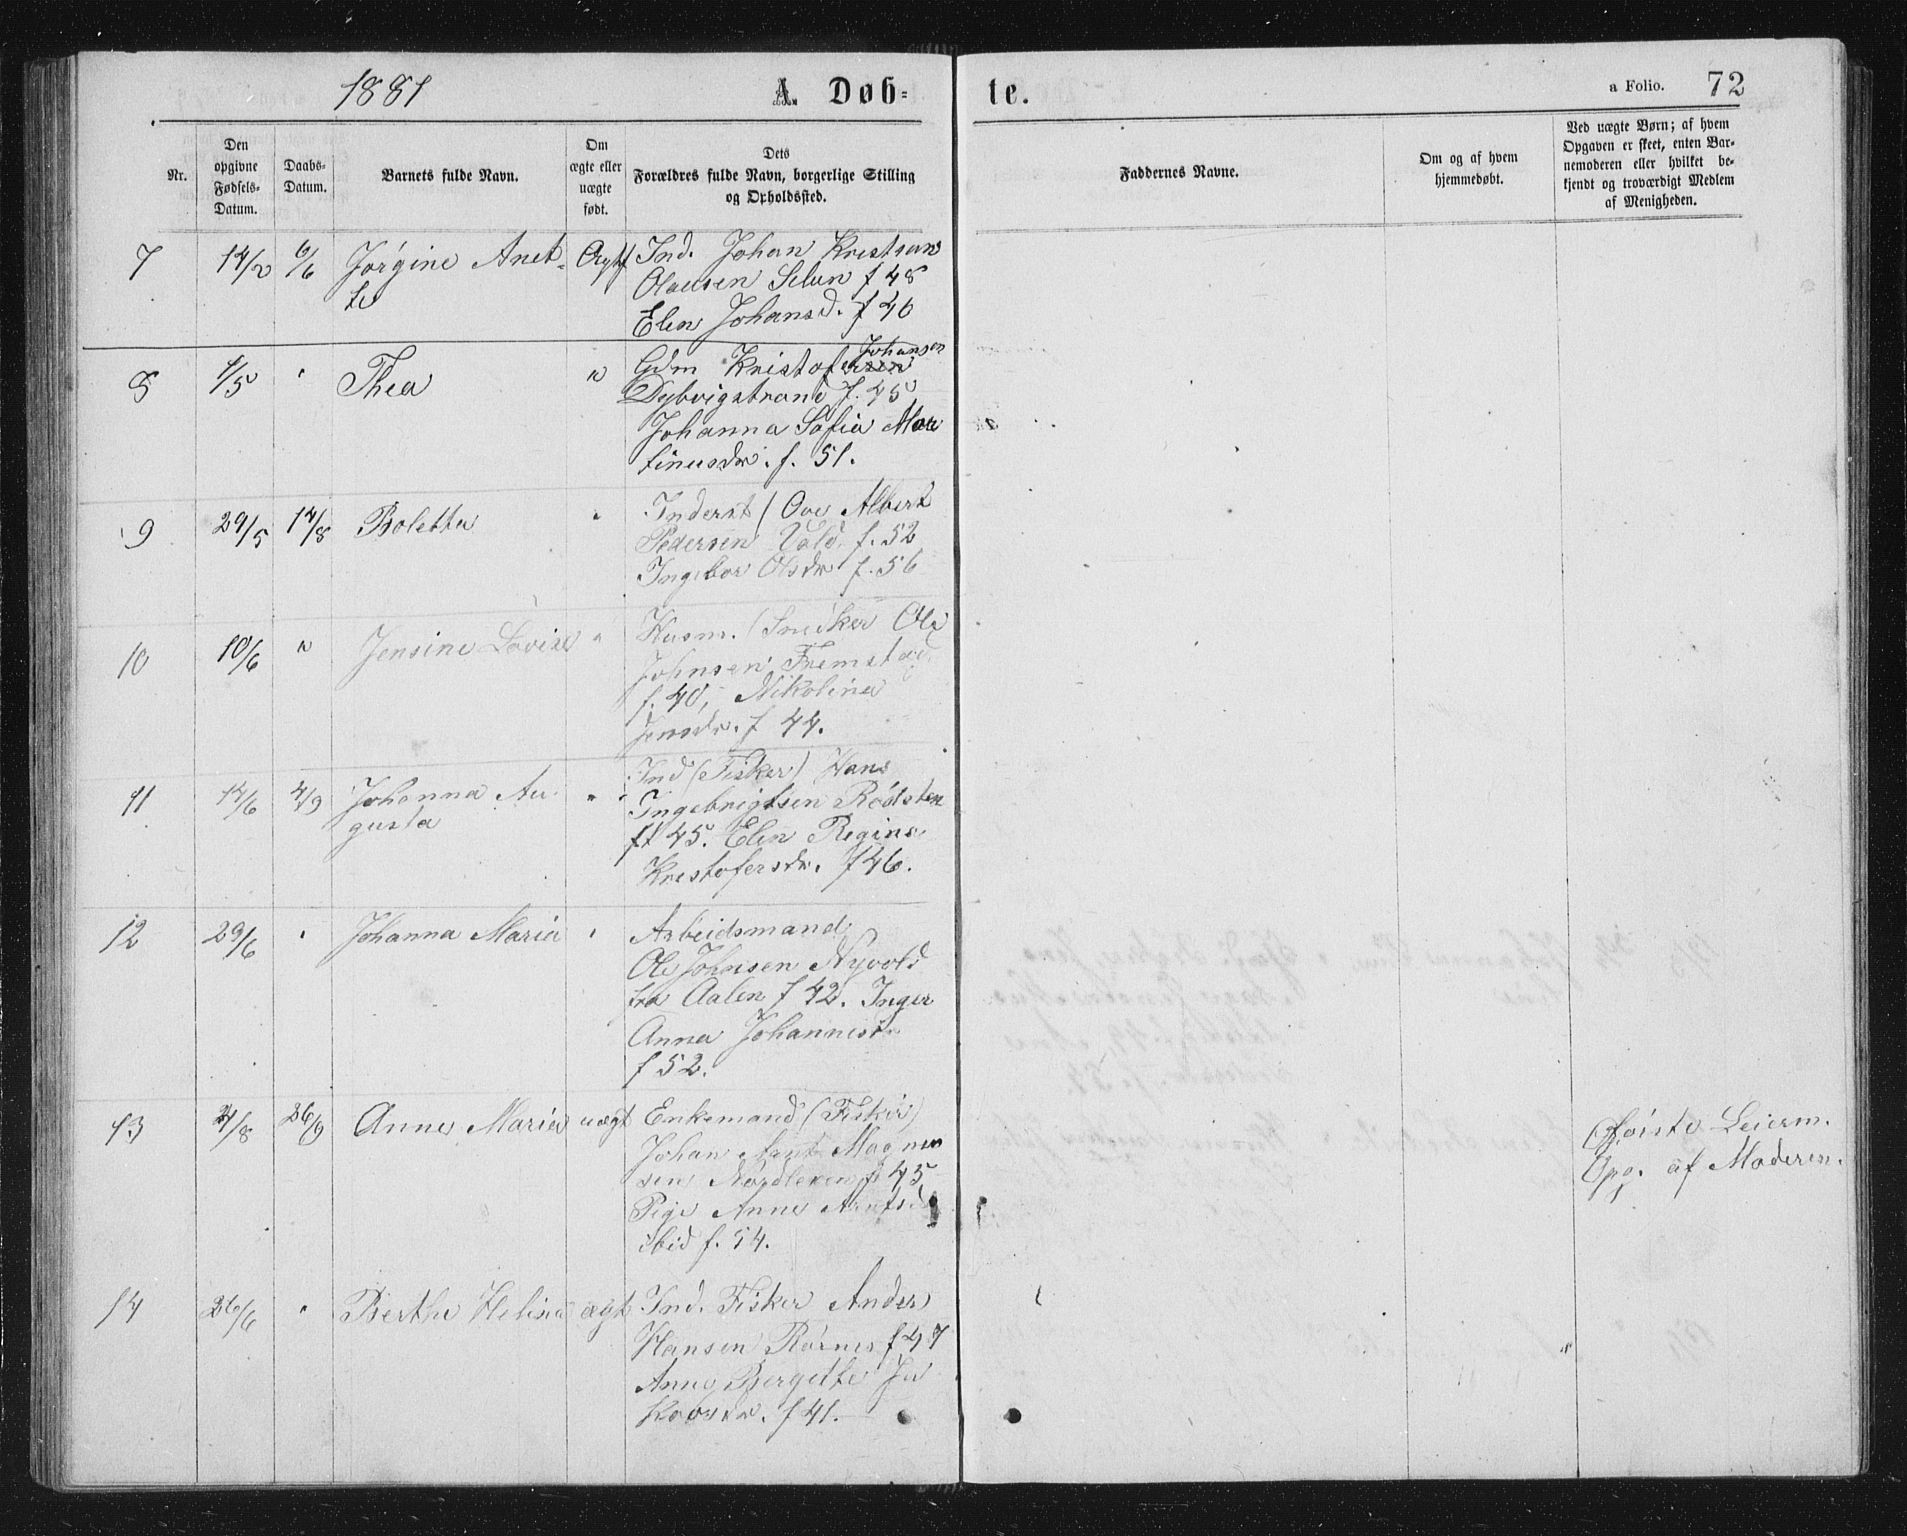 1881
A. Døb-
te.
a Folio. 72
Nr.
Den opgivne Fødsels-Datum.
Daabs-Datum.
Barnets fulde Navn.
Om ægte eller uægte født.
Dets Forældres fulde Navn, borgerlige Stilling og Opholdssted.
Faddernes Navne.
Om og af hvem hjemmedøbt.
Ved uægte Børn; af hvem Opgaven er skeet, enten Barnemoderen eller hvilket bekjendt og troværdigt Medlem af Menigheden.
7 14/2 6/6 Jørgine Anet- Ægte Ind. Johan
te Olausen Selun f 48
Elen Johansd. f 46
8 /5 " Thea " Gdm Kristofer Johansen
Dybvigstrand f. 45
Johanna Sofia Mar
tinusdr. f. 51.
9 29/5 14/8 Boletta " Inderst / Ove Albert
Pedersen Vold f. 52
Ingebor Olsdr f. 56
10 10/6 " Jensine Lovise " Husm. (Snedker Ole
Johnsen Fremstad
f. 40, Nikolina
Jensdr. f 44.
11 14/6 4/9 Johanna Au- " Ind (Fisker) Hans
gusta Ingebrigtsen Rødsten
f 45. Elen Regine
Kristofersdr. f 46.
12 29/6 " Johanna Maria " Arbeidsmand
Ole Johnsen Nyvold
fra Aalen f 42. Inger
Anna Johannesdr
f 52.
13 /8 26/9 Anne Maria uægt Enkemand (Fisker)
Johan Arnt Magnus
sen Nordlexen f. 45,
Pige Anne Arntsd
ibid f. 54.
Første Leierm.
Opg. af Moderen.
14 26/6 " Berthe Helina ægt Ind. Fisker Anders
Hansen Rørnes f 47
Anne Bergitte Ja
kobsdr. f 41.